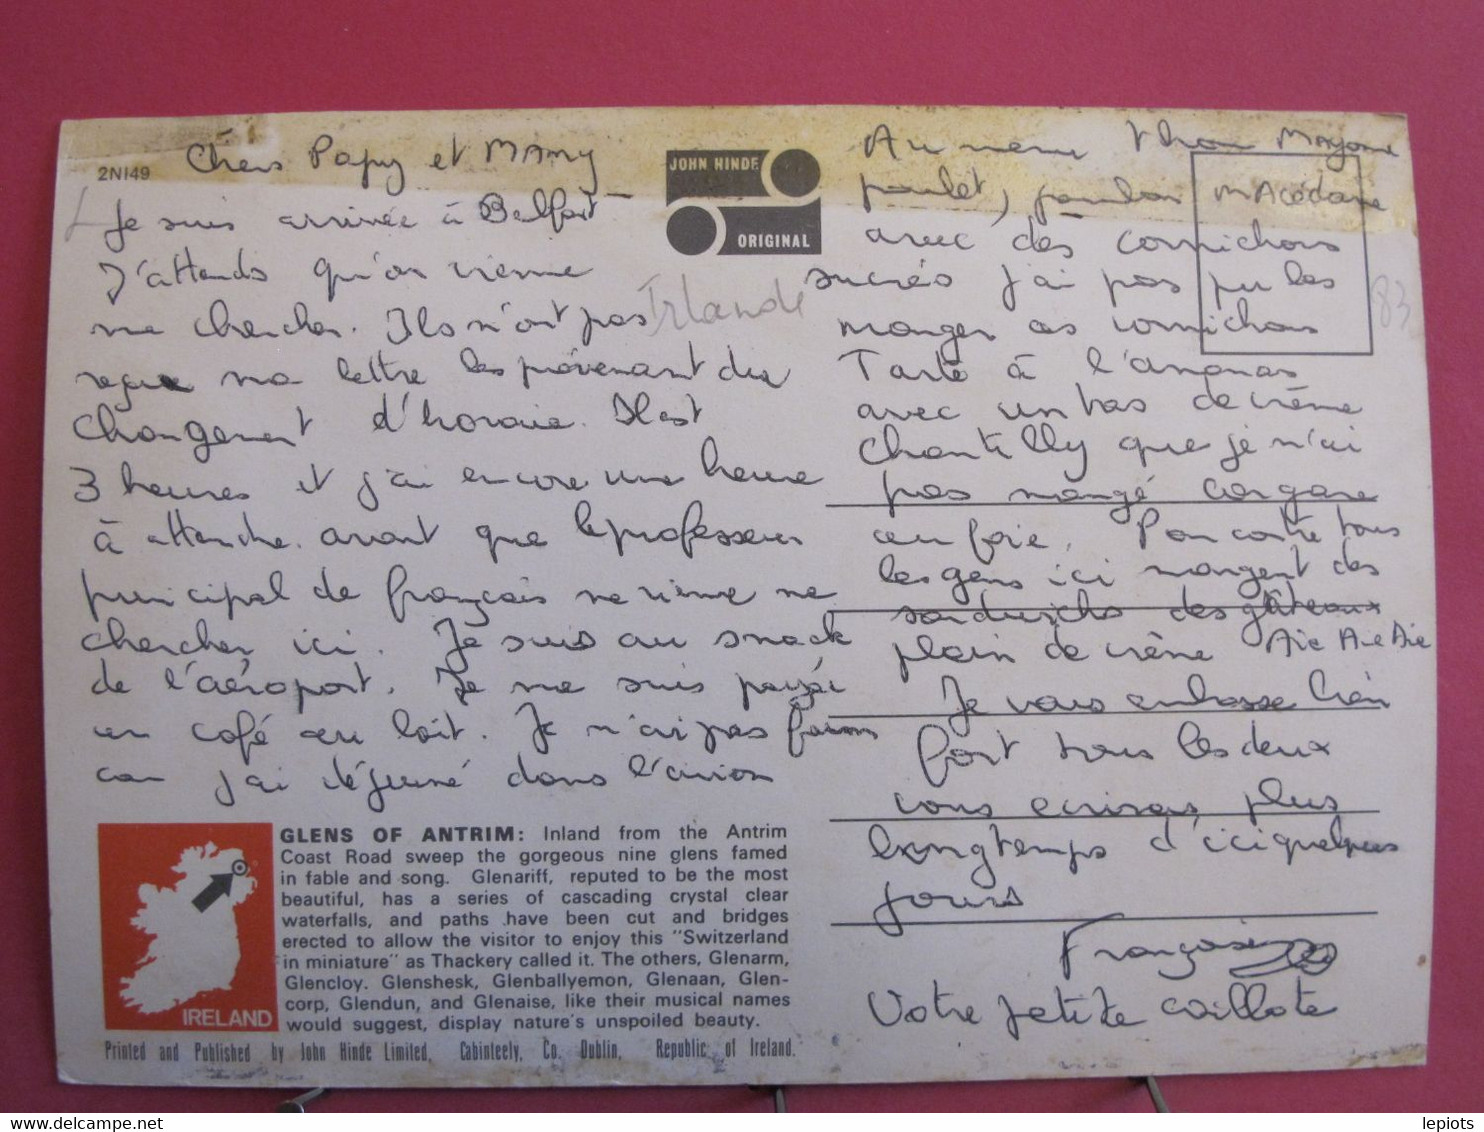 2NI49
Chers Papy et MAMY
Je suis arrivée à Belfast
J'attends qu'on vienne
me chercher. Ils n'ont pas
reçu ma lettre les prévenant du
changement d'horaire. Il est
3 heures et j'ai encore une heure
à attendre avant que le professeur
principal de français ne vienne me
chercher ici. Je suis au snack
de l'aéroport. Je me suis payée
un café au lait. Je n'ai pas faim
car j'ai déjeuné dans l'avion
Irlande
JOHN HINDE
ORIGINAL
Au menu Thon Mayonne
poulet, jambon MAcédoine
avec des cornichons
sucrés j'ai pas pu les
manger ces cornichons
Tarte à l'ananas
avec un tas de crème
chantilly que je n'ai
pas mangé car gare
au foie. Par contre tous
les gens ici mangent des
sandwichs des gâteaux
plein de crème Aïe Aïe Aïe
Je vous embrasse bien
fort tous les deux
vous écrirai plus
longtemps d'ici quelques
jours
Françoise
Votre petite caillote
83
GLENS OF ANTRIM: Inland from the Antrim
Coast Road sweep the gorgeous nine glens famed
in fable and song. Glenariff, reputed to be the most
beautiful, has a series of cascading crystal clear
waterfalls, and paths have been cut and bridges
erected to allow the visitor to enjoy this "Switzerland
in miniature" as Thackery called it. The others, Glenarm,
Glencloy. Glenshesk, Glenballyemon, Glenaan, Glen-
corp, Glendun, and Glenaise, like their musical names
would suggest, display nature's unspoiled beauty.
IRELAND
Printed and Published by John Hinde Limited, Cabinteely, Co. Dublin, Republic of Ireland.
delcampe.net
lepiots